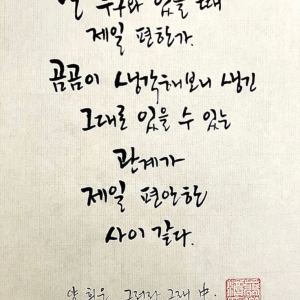 난 누구와 있을 때
제일 편한가.
곰곰이 생각해보니 생긴
그대로 있을 수 있는
관계가
제일 편안한
사이 같다.
양희은 그러라 그래 中.